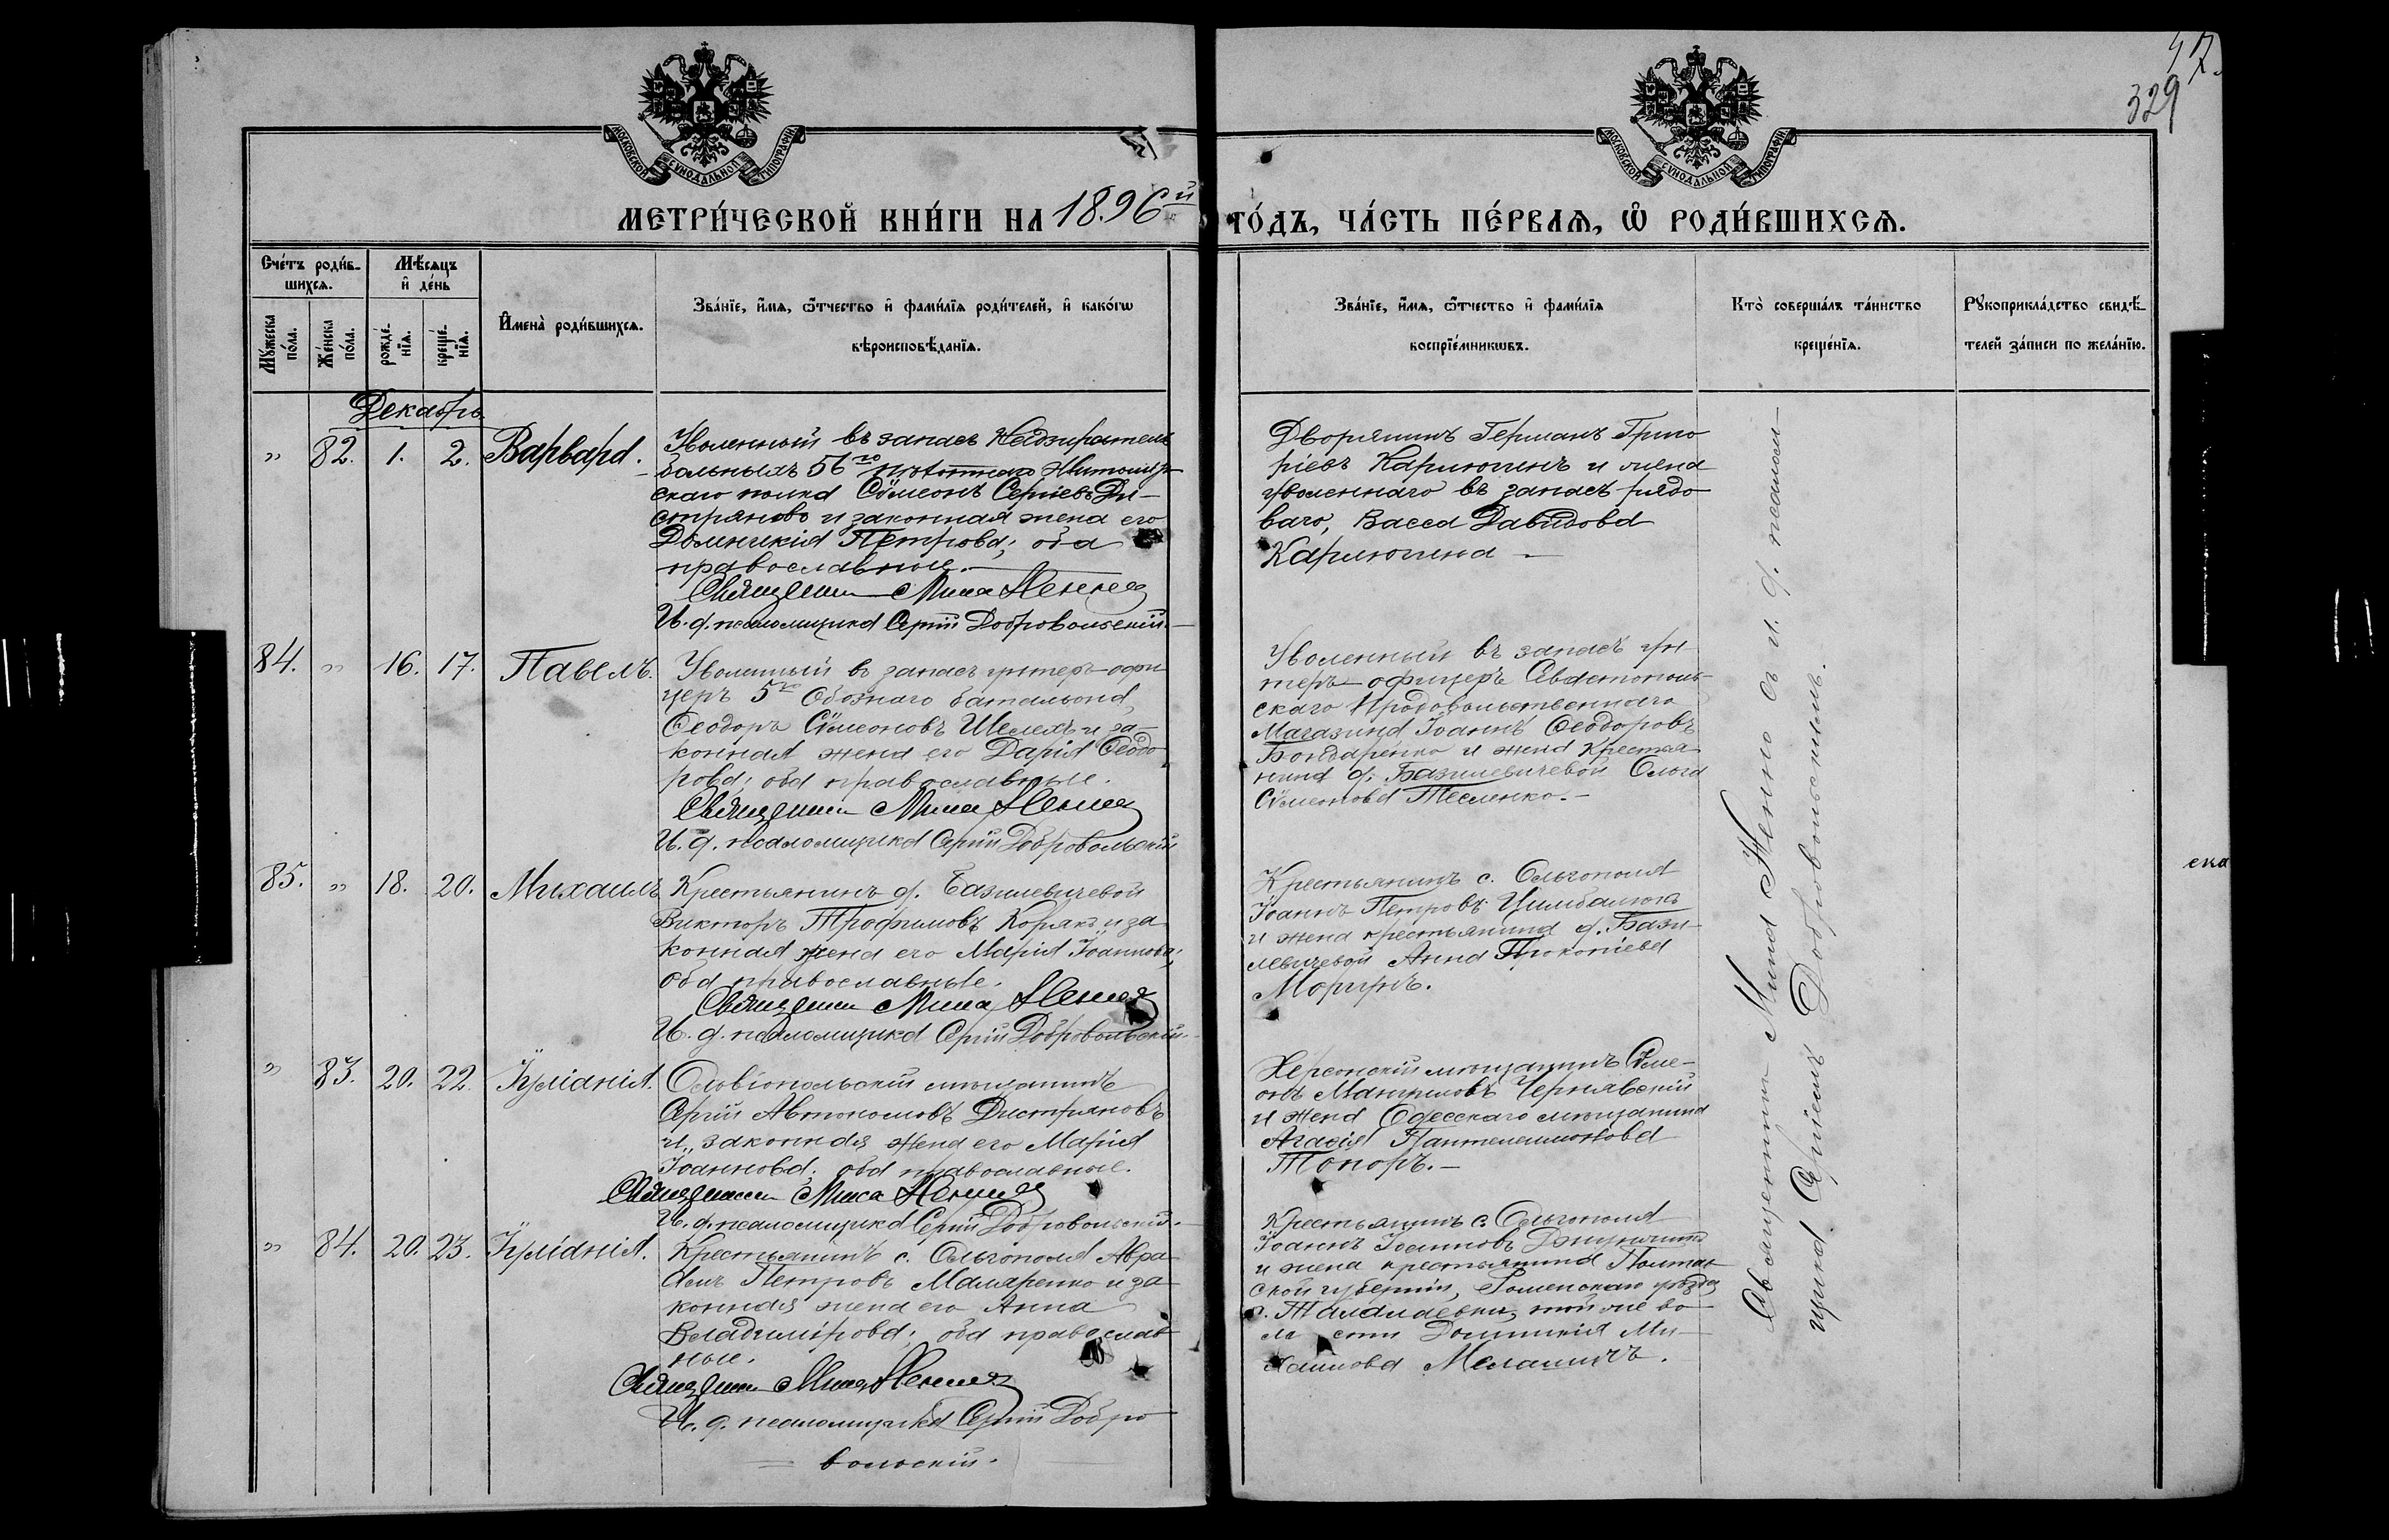 47.
329
МОСКОВСКОЙ СѴНОДАЛЬНОЙ ТИПОГРАФІИ
МОСКОВСКОЙ СѴНОДАЛЬНОЙ ТИПОГРАФІИ
МЕТРИ́ЧЕСКОЙ КНИ́ГИ НА 1896й ГО́ДЪ, ЧА́СТЬ ПЕ́РВАѦ, Ѡ҆ РОДИ́ВШИХСѦ.
Сче́тъ роди́в-
шихсѧ.
Мꙋ́жеска по́ла.
Же́нска по́ла.
Мѣ́сѧцъ
и҆ де́нь
рожде́-
нїѧ.
креще́-
нїѧ.
И҆мена̀ роди́вшихсѧ.
Зва́нїе, и҆́мѧ, ѻ҆́тчество и҆ фами́лїѧ роди́телей, и҆ како́гѡ
вѣроисповѣ́данїѧ.
Зва́нїе, и҆́мѧ, ѻ҆́тчество и҆ фами́лїѧ
воспрїе́мникѡвъ.
Кто̀ соверша́лъ та́инство
креще́нїѧ.
Рꙋкоприкла́дство свидѣ́-
телей за́писи по жела́нїю.
Декабрь
" 82. 1. 2. Варвара.
Уволенный въ запасъ Надзиратель
больныхъ 56го пѣхотнаго Житомир-
скаго полка Сѵмеонъ Сергіевъ Ди-
стряновъ и законная жена его
Домникія Петрова; оба
православные.
Священникъ Мина Ненно
И. д. псаломщика Сергій Добровольскій.
Дворянинъ Германъ Григо
ріевъ Карлюгинъ и жена
уволеннаго въ запасъ рядо
ваго, Васса Давидова
Карлюгина —
84. " 16. 17. Павелъ.
Уволенный въ запасъ унтеръ-офи
церъ 5го Обознаго баталіона,
Ѳеодоръ Сѵмеоновъ Шелехъ и за-
конная жена его Дарія Ѳеодо
рова; оба православные.
Священникъ Мина Ненно
И. д. псаломщика Сергій Добровольскій
Уволенный въ запасъ ун
теръ-офицеръ Севастополь-
скаго Продовольственнаго
Магазина Іоаннъ Ѳеодоровъ
Бондаренко и жена Крестья
нина д. Базилевичевой Ольга
Сѵмеонова Тесленко. —
85. " 18. 20. Михаилъ
Крестьянинъ д. Базилевичевой
Викторъ Трофимовъ Корякъ и за
конная жена его Марія Іоаннова;
оба православные.
Священникъ Мина Ненно
И. д. псаломщика Сергій Добровольскій.
Крестьянинъ с. Ольгополя
Іоаннъ Петровъ Цимбалюкъ
и жена крестьянина д. Бази-
левичевой Анна Прокопіева
Моргунъ.
" 83. 20. 22. Іуліанія.
Ольвіопольскій мѣщанинъ
Сергій Автономовъ Дистряновъ
и законная жена его Марія
Іоаннова; оба православные.
Священникъ Мина Ненно
И. д. псаломщика Сергій Добровольскій.
Херсонскій мѣщанинъ Сѵме-
онъ Мануиловъ Чернявскій
и жена Одесскаго мѣщанина
Агафія Пантелеимонова
Топоръ. —
" 84. 20. 23. Іуліанія.
Крестьянинъ с. Ольгополя Авра
амъ Петровъ Маляренко и за
конная жена его Анна
Владимірова; оба православ
ные.
Священникъ Мина Ненно
И. д. псаломщика Сергій Добро
вольскій.
Крестьянинъ с. Ольгополя
Іоаннъ Іоанновъ
и жена крестьянина Полтав
ской губерніи, Роменскаго уѣзда
с. Талалаевки, той же во
ло сти Домникія Ми-
хаилова
Священникъ Мина Ненно съ и. д. псалом-
щика Сергіемъ Добровольскимъ.
ска